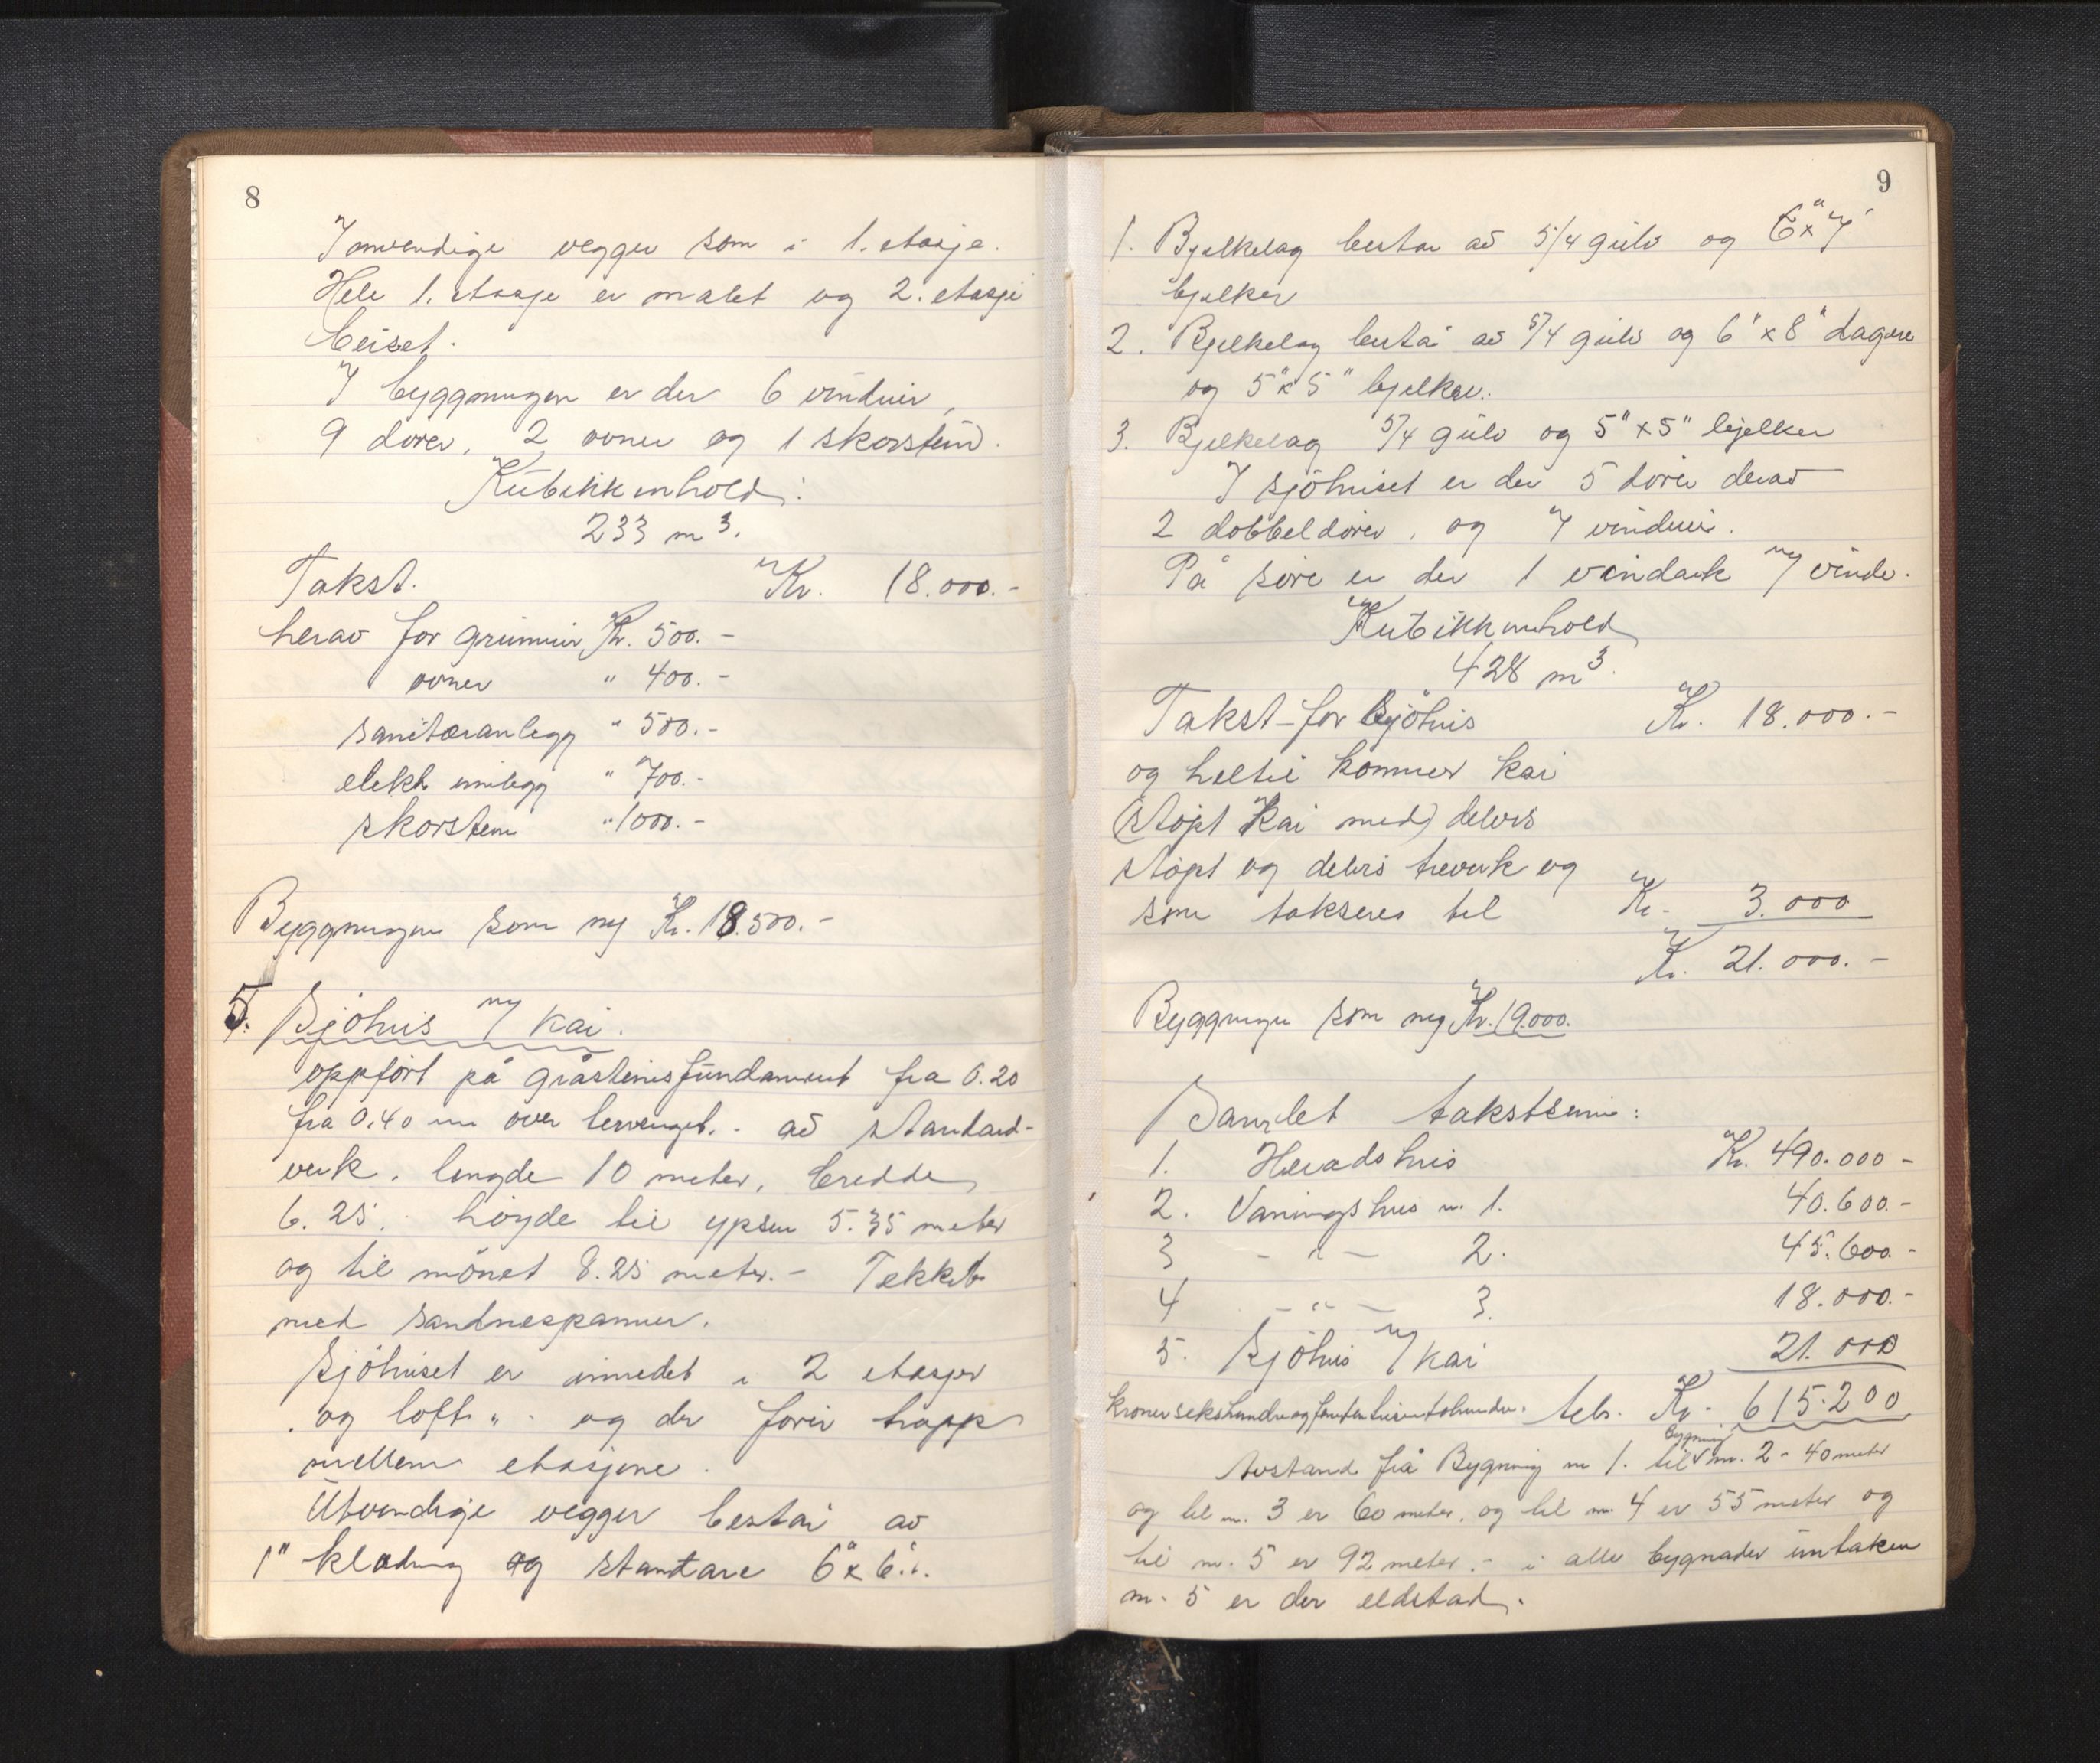 8
Innvendige vegger som i 1. etasje.
Hele 1. etasje er malet og 2. etasje
beiset.
I byggningen er der 6 vinduer,
9 dører, 2 ovner og 1 skorstein.
Kubikkinhold:
233 m³.
Takst. Kr. 18.000.-
herav for grunnmur Kr. 500.-
ovner " 400.-
sanitæranlegg " 500.-
elektr. innlegg " 700.-
skorstein " 1000.-
Byggningen som ny Kr. 18.500.-
5. Sjöhus m/ kai.
oppført på gråsteinsfundament fra 0.20
fra 0,40 m over terrenget. - av standard-
verk. lengde 10 meter, bredde
6.25. høyde til ypsen 5.35 meter
og til mönet 8.25 meter. - Tekket
med sandnespanner.
Sjöhuset er innredet i 2 etasjer
og loft " - og der fører trapp
mellem etasjene.
Utvendige vegger består av
1" kledning og standare 6" x 6".
9
1. Bjelkelag består av 5/4 gulv og 6" x 7"
bjelker
2. Bjelkelag består av 5/4 gulv og 6" x 8" dagere
og 5" x 5" bjelker.
3. Bjelkelag 5/4 gulv og 5" x 5" bjelker
I sjöhuset er der 5 dører derav
2 dobbeldører, og 7 vinduer.
På søre er der 1 vindark m/ vindu.
Kubikkinhold
428 m³.
Takst for Sjöhus Kr. 18.000.-
og heltil kommer kai
(støpt kai med) delvis
støpt og delvis treverk og
som takseres til Kr. 3.000
Kr. 21.000.-
Byggningen som ny Kr. 19.000.
Samlet takstsum:
1. Heradshus Kr. 490.000-
2. Vaningshus nr. 1. 40.600.-
3 - " - 2. 45.600.-
4 - " - 3. 18.000.-
5. Sjöhus m/ kai 21.000
kroner sekshundreogfemtentusentohundre. tils. Kr. 615.200
Avstand frå Bygning nr 1. til bygning nr. 2 - 40 meter
og til nr. 3 er 60 meter, og til nr 4 er 55 meter og
til nr. 5 er 92 meter. - i alle bygnader untaken
nr. 5 er der eldstad.